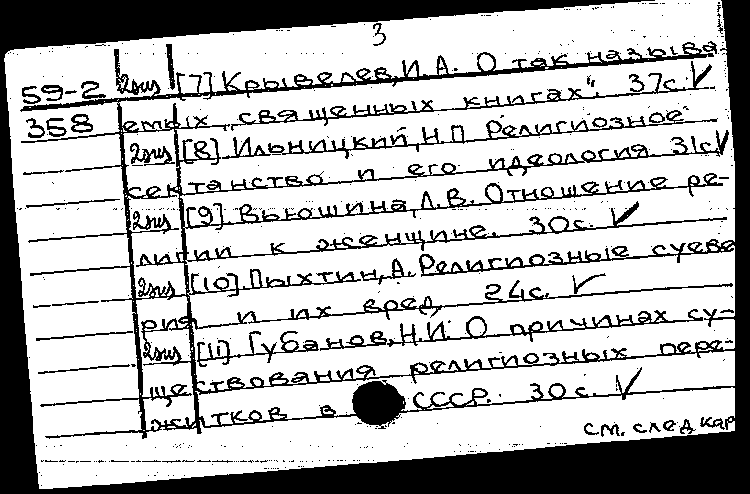 3
59-2 2экз [7] Крывелев, И.А. О так называ-
358 емых „священных книгах“. 37с. ✓
2экз [8]. Ильницкий, Н.П Религиозное
сектанство и его идеология. 31с ✓
2экз [9]. Вьюшина, Л.В. Отношение ре-
лигии к женщине. 30с. ✓
2экз [10]. Пыхтин, А. Религиозные суеве
рия и их вред 24с. ✓
2экз [11]. Губанов, Н.И. О причинах су-
ществования религиозных пере-
житков в СССР. 30с. ✓
см. след кар